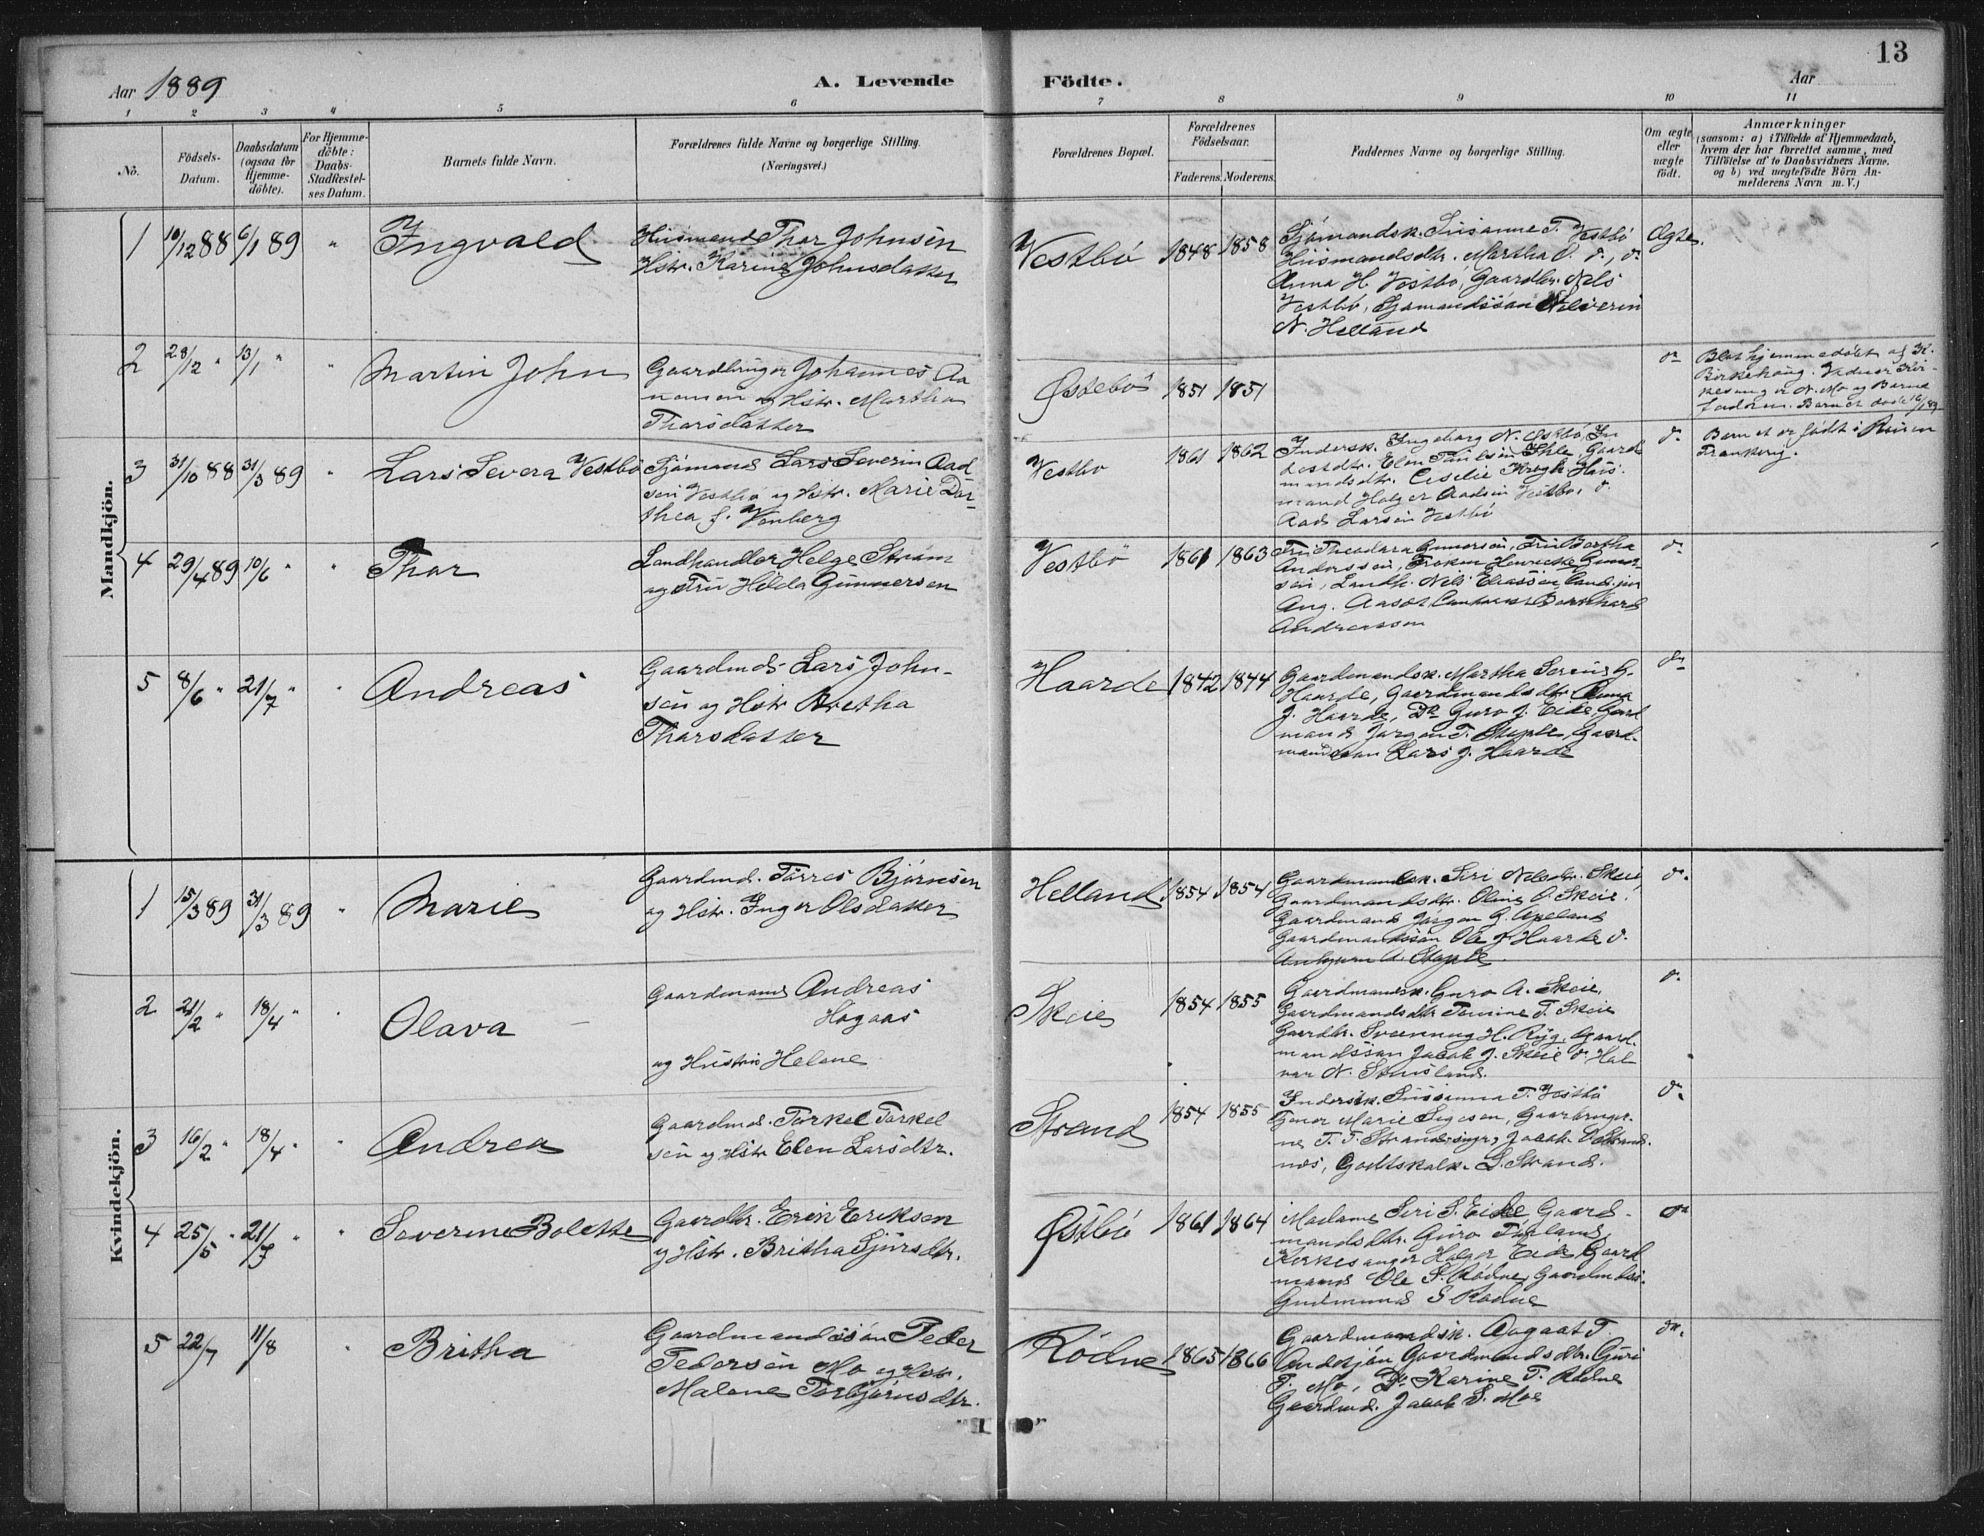 13
Aar 1889
A. Levende Födte.
Aar
1 2 3 4 5 6 7 8 9 10 11
No.
Födsels-Datum.
Daabsdatum (ogsaa for Hjemme-döbte).
For Hjemme-döbte: Daabs-Stadfæstel-ses Datum.
Barnets fulde Navn.
Forældrenes fulde Navne og borgerlige Stilling.
(Næringsvei.)
Forældrenes Bopæl.
Forældrenes Födselsaar.
Faderens. Moderens.
Faddernes Navne og borgerlige Stilling.
Om ægte eller uægte födt.
Anmærkninger
(saasom: a) i Tilfælde af Hjemmedaab,
hvem der har forrettet samme, med
Tilföielse af to Daabsvidners Navne.
og b) ved uægtefödte Börn An-
melderens Navn m. V.)
Mandkjön.
1 10/12 88 6/1 89 " Ingvald
Husmand Thor Johnsen
Hstr. Karine Johnsdatter
Vestbö 1848 1858
Sjömandsk. Susanne T. Vestbö
Husmandsdtr. Martha
Anna H. Vestbö, Gaardbr. Nils
Vestbö, Sjömandssön
N. Helland
Ægte.
2 28/12 " 13/1 " " Martin John
Gaardbruger Johannes Aa
nensen og Hstr. Martha
Thorsdatter
Østebö 1851 1851
do
Blev hjemmedöbt af K.
N. Mo og Barnets
faderen. Barnet döde
3 31/10 88 31/3 89 Lars Severin Vestbö
Sjömand Lars Severin Aad
sen Vestbö og Hstr. Marie Dor-
thea f. Vinberg
Vestbö 1861 1862
Indersk. Ingeborg N. Østbö, In
Cecilie Krogh, Hus-
mand Holger Aadsen Vestbö, d.
Aad Larsen Vestbö
do
Barnet er födt i
4 29/4 89 10/6 " " Thor
Landhandler Helge Ström
og Fru Hilda Gunnersen
Vestbö 1861 1863
Fru Theodora Gunnersen, Fru Bertha
Anderssen, Fröken Henriette Gunner-
sen, Landh. Nils Eliassen Cand. jur
Aug. Bernhard
Andreassen
do
5 8/6 " 21/7 " " Andreas
Gaardmd. Lars John-
sen og Hstr. Bretha
Thorsdatter
Haarde 1842 1844
Gaardmandsk. Martha Serine G.
Haarde, Gaardmandsdtr. Anna
J. Haarde, Do Guro J. Eide, Gaard
mand Jörgen T. Stople, Gaard-
mandssön Lars J. Haarde
do
Kvindekjön.
1 15/3 89 31/3 89 " Marie
Gaardmd. Törres Björnsen
og Hstr. Inger Olsdatter
Helland 1854 1854
Gaardmandsk. Siri Nilsdtr. Skeie,
Gaardmandsdtr. Oline O. Skeie,
Gaardmand Jörgen G. Apeland
Gaardmandssön Ole J. Haarde d.
A. Stople
do
2 21/2 " 18/4 " " Olava
Gaardmand Andreas
Hogaas
og Hustru Helene
Skeie 1854 1855
Gaardmandsk. Guro A. Skeie,
Gaardmandsdtr. Tomine T. Skeie
Gaardbr. Svenning H. Ryg, Gaard-
mandssön Jacob J. Skeie d. Hal
var N. Stensland.
do
3 16/2 " 18/4 " " Andrea
Gaardmd. Torkel Torkel
sen og Hstr. Elen Larsdtr.
Strand 1854 1855
Indersk. Susanna T. Vestbö
Marie Gaardbruger-
ne T. T. Jacob
næs, Godtskalk L. Strand.
do
4 25/5 " 21/7 " " Severine Bolette
Gaardbr. Erik Eriksen
og Hstr. Britha Sjursdtr.
Østbö 1861 1864
Madame Siri S. Eide Gaard-
mandsdtr. Guro
Kirkesanger Holger Eide Gaard
mand Ole S. Rödne, Gaardmdssö.
Gudmund S. Rödne
do
5 22/7 11/8 " Britha
Gaardmandssön Peder
Pedersen Mo og Hstr.
Malene Torbjörnsdtr.
Rödne 1865 1866
Gaardmandsk. Aagaat T.
Gaardmandsdtr. Guri
T. Mo, Do Karine T. Rödne
Gaardmd. Jacob S. Moe
do.